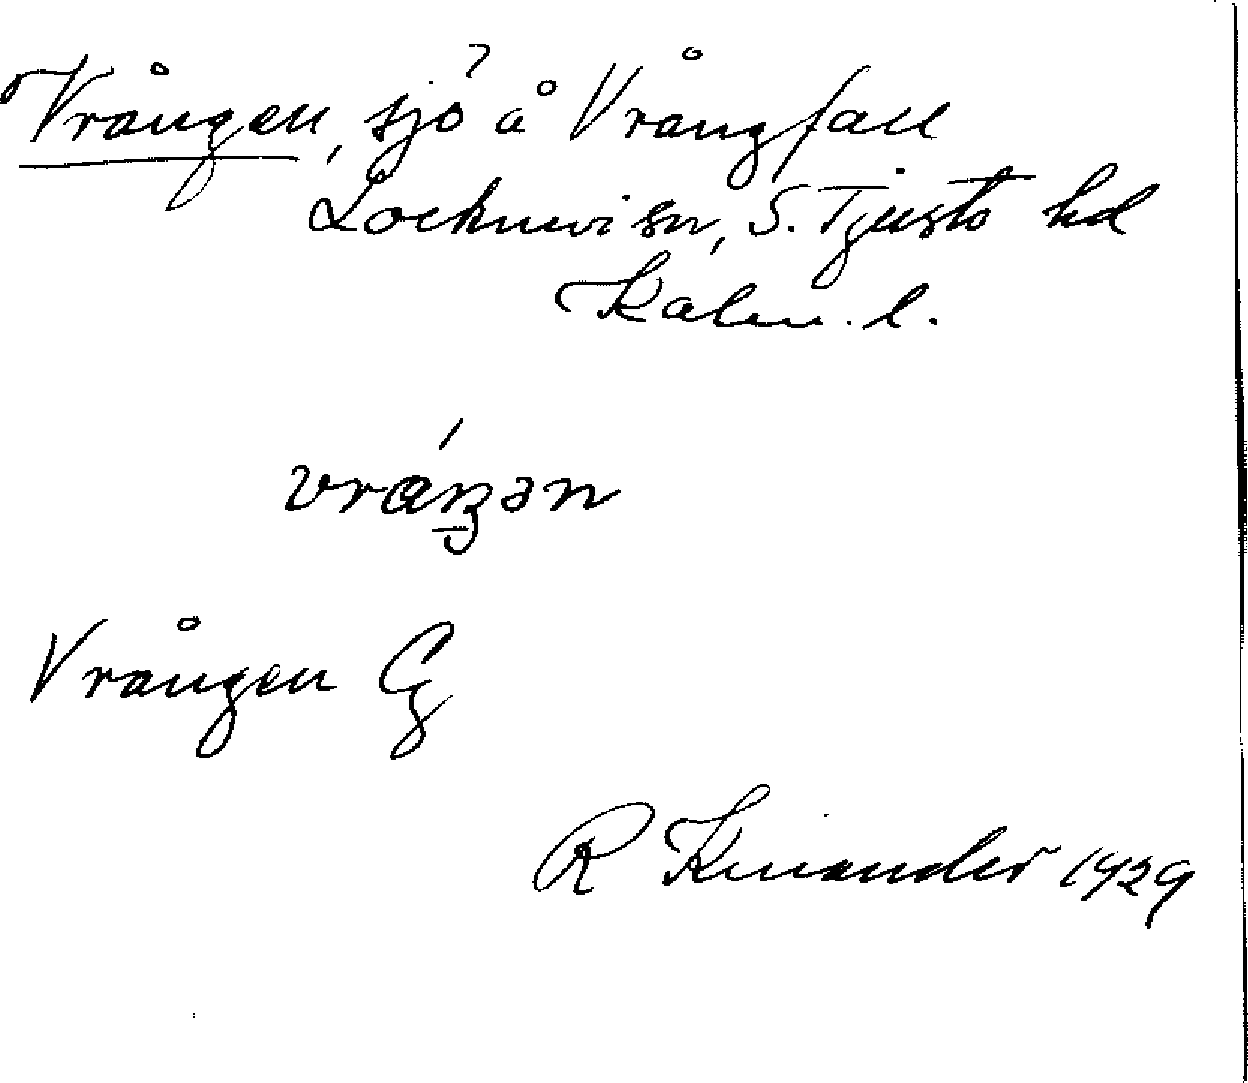 Vrången, sjö å Vrångfall
Locknevi sn, S. Tjusts hd
Kalm. l.
vráŋən
Vrången G
R Kinander 1929